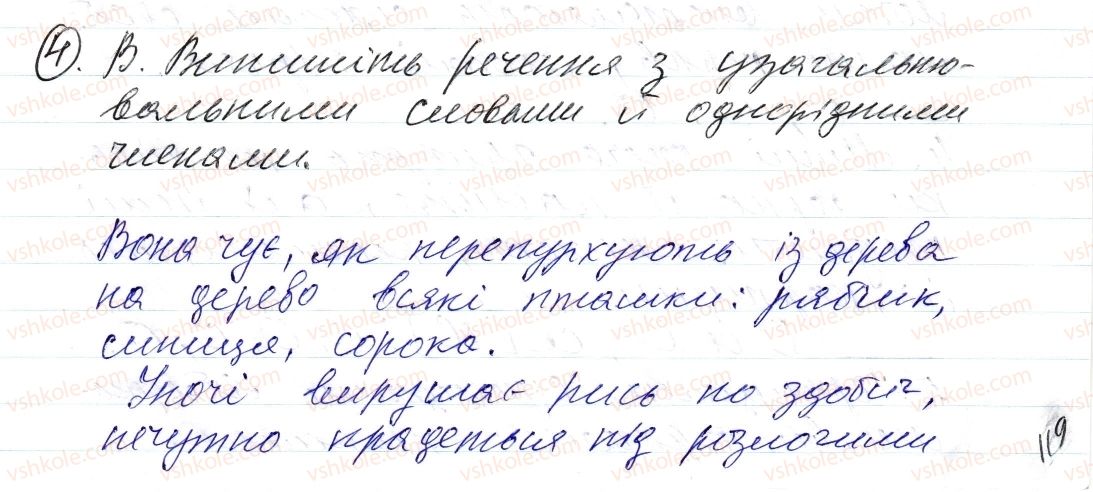 4. В. Випишіть речення з узагальню-
вальними словами й однорідними
членами.
Вона чує, як перепурхують із дерева
на дерево всякі пташки: рябчик,
синиця, сорока.
Уночі вирушає рись по здобич,
нечутно крадеться під розлогими
119